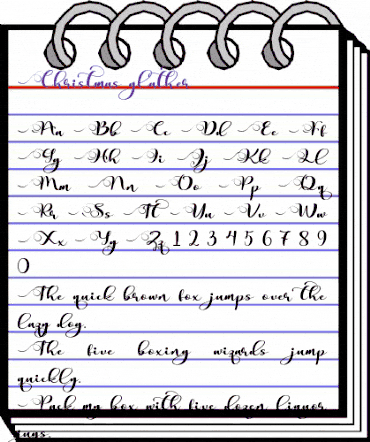 Christmas glather
Aa Bb Cc Dd Ee Ff
Gg Hh Ii Jj Kk Ll
Mm Nn Oo Pp Qq
Rr Ss Tt Uu Vv Ww
Xx Yy Zz 1 2 3 4 5 6 7 8 9
0
The quick brown fox jumps over the
lazy dog.
The five boxing wizards jump
quickly.
Pack my box with five dozen liquor
jugs.